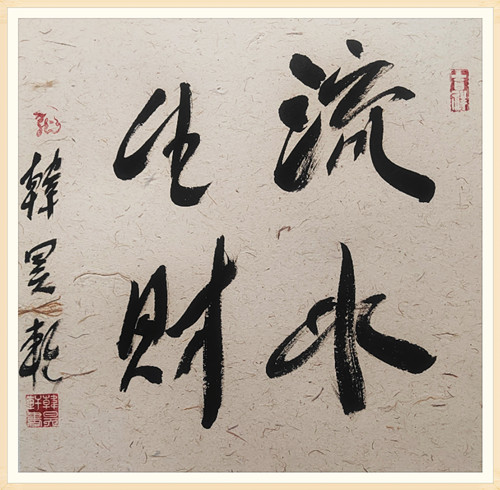 流水
生財
韓昊乾